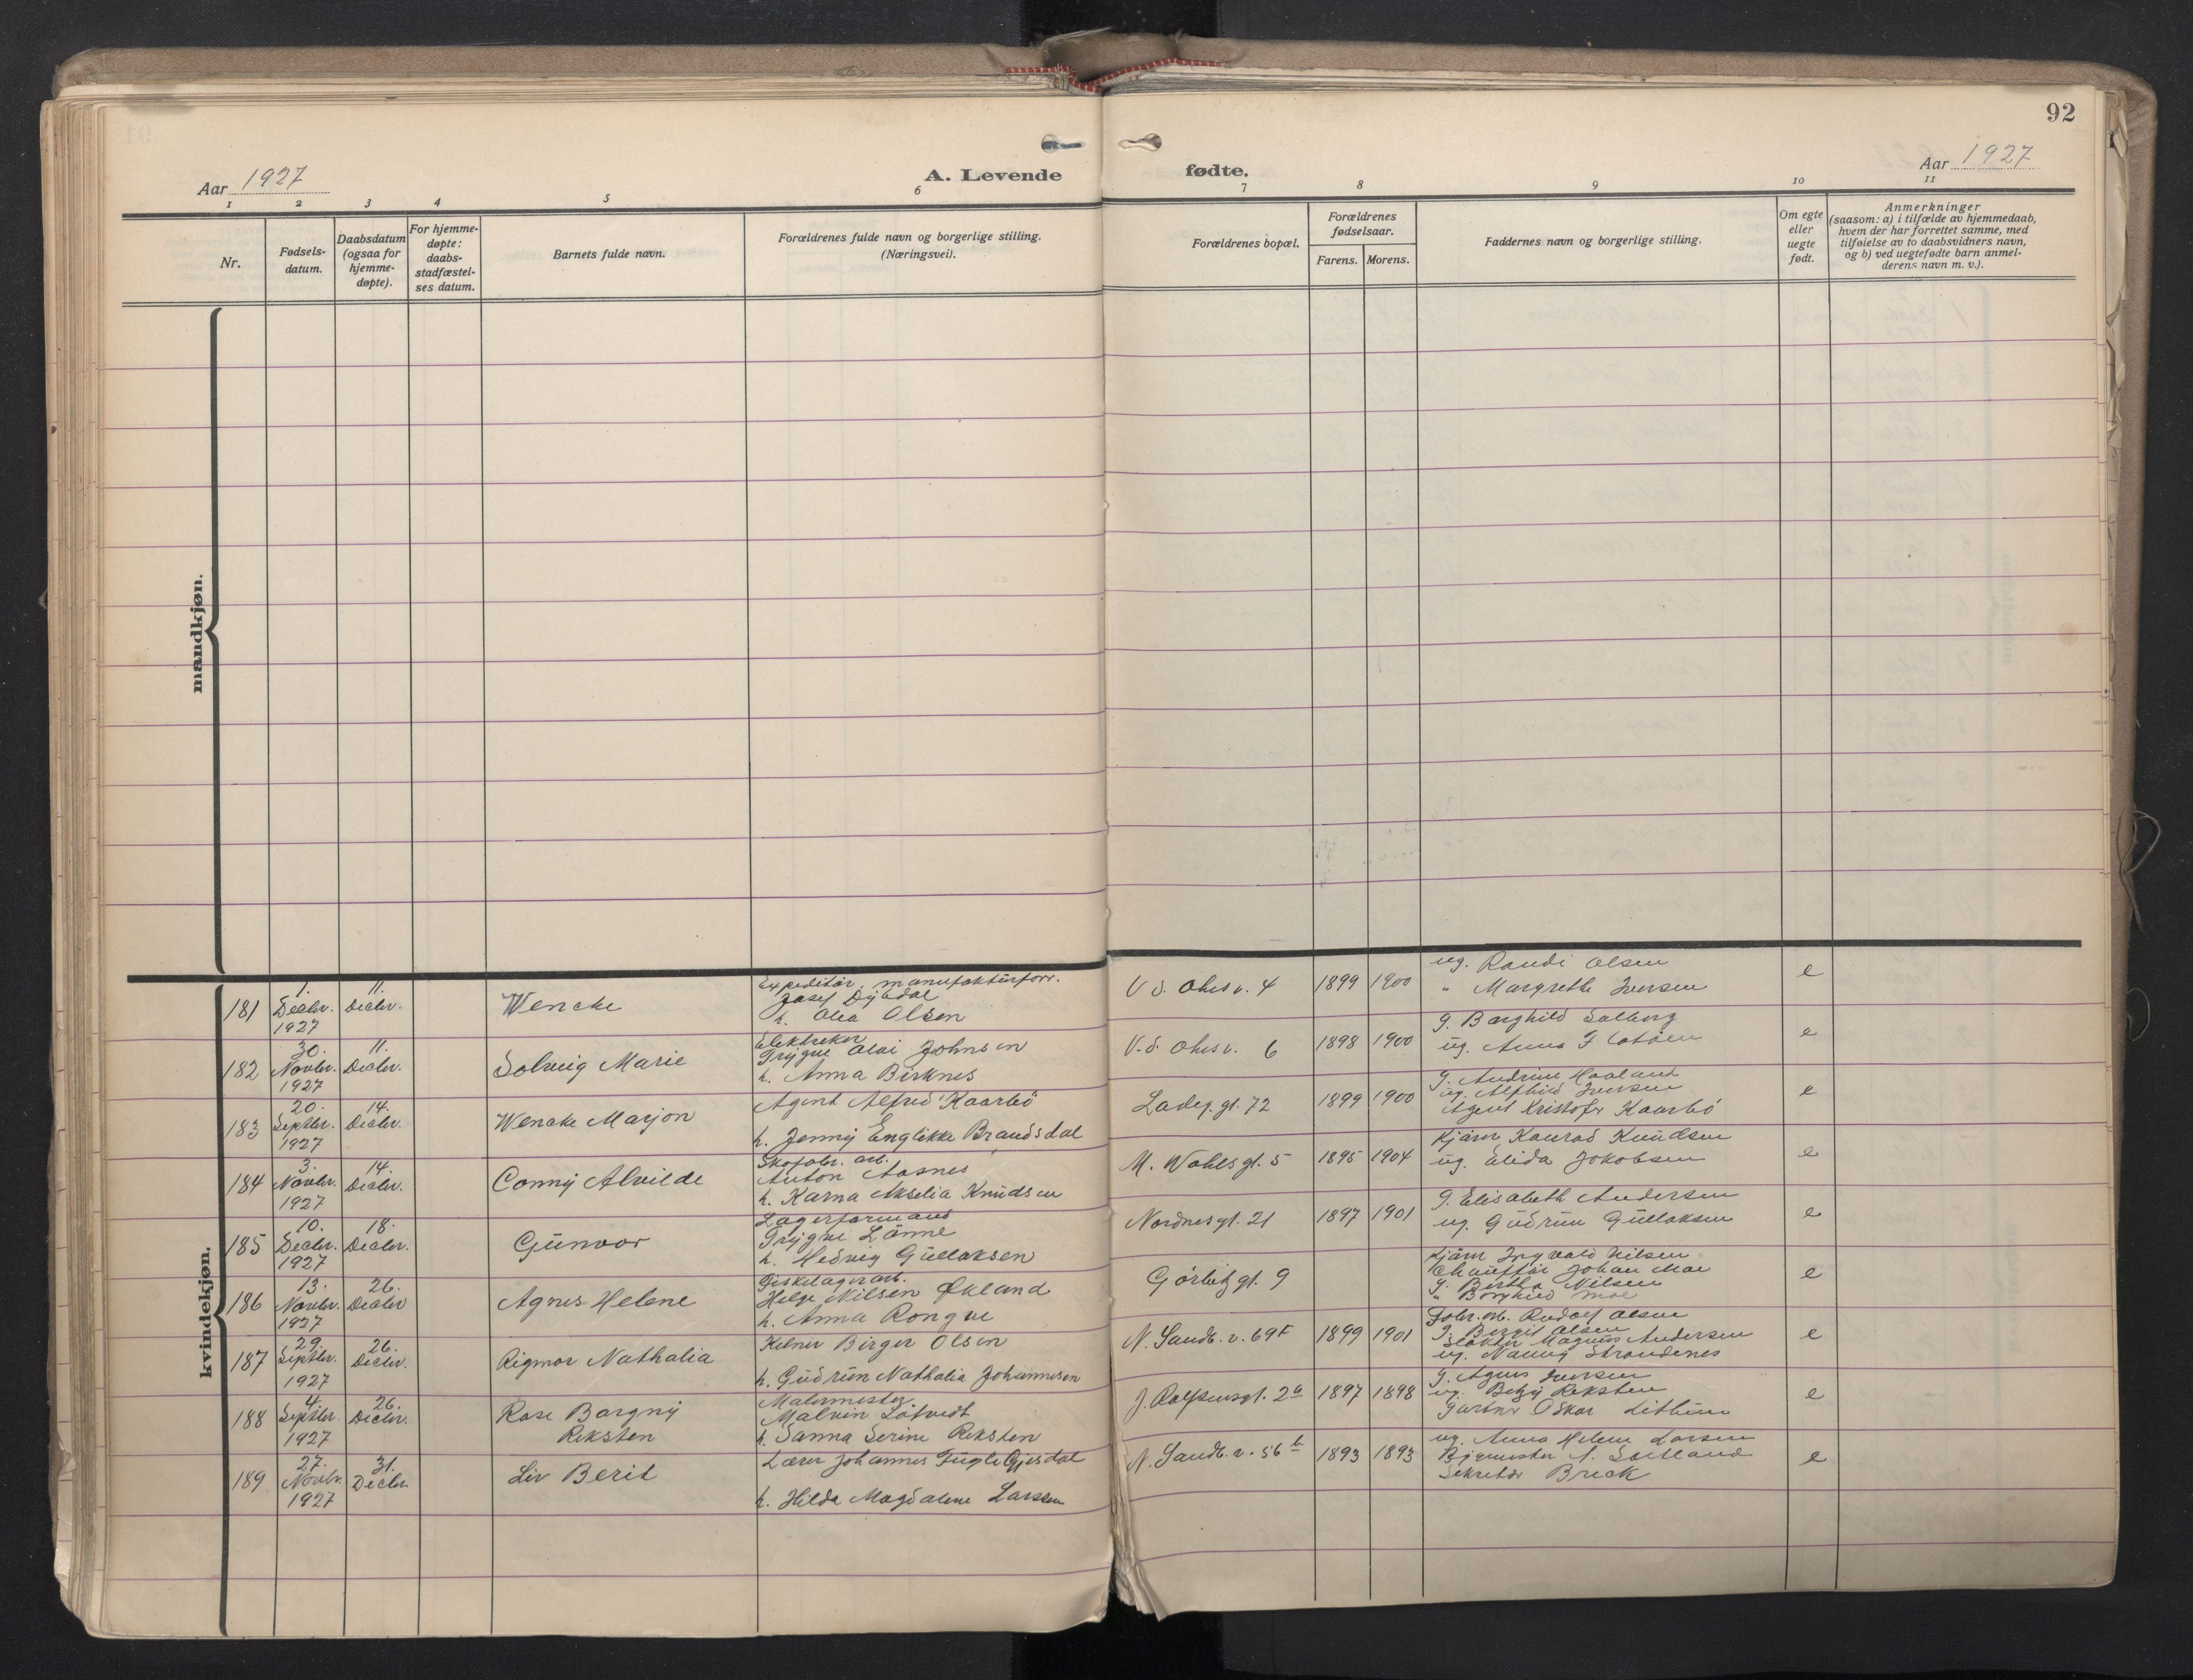 92
Aar 1927
A. Levende
fødte.
Aar 1927
1 2 3 4 5 6 7 8 9 10 11
Nr.
Fødsels-
datum.
Daabsdatum
(ogsaa for
hjemme-
døpte).
For hjemme-
døpte:
daabs-
stadfæstel-
ses datum.
Barnets fulde navn.
Forældrenes fulde navn og borgerlige stilling.
(Næringsvei).
Forældrenes bopæl.
Forældrenes
fødselsaar.
Farens. Morens.
Faddernes navn og borgerlige stilling.
Om egte
eller
uegte
født.
Anmerkninger
(saasom: a) i tilfælde av hjemmedaab,
hvem der har forrettet samme, med
tilføielse av to daabsvidners navn,
og b) ved uegtefødte barn anmel-
derens navn m. v.).
mandkjøn.
kvindekjøn.
181
1.
Decbr.
1927
11.
Decbr.
Wencke
Expeditør, manufakturforr.
Josef Dybdal
h. Olea Olsen
V d. Ohes v. 4
1899
1900
ug. Randi Olsen
" Margrethe Iversen
e
182
30.
Novbr.
1927
11.
Decbr.
Solveig Marie
Elektriker
Trygve Olai Johnsen
h. Anna Birknes
V. d. Ohes v. 6
1898
1900
g. Borghild Solberg
ug. Anna
e
183
20.
Septbr.
1927
14.
Decbr.
Wencke Marjon
Agent Alfred Kaarbö
h. Jenny Englikke Brandsdal
Ladeg. gt. 72
1899
1900
g. Andrine Haaland
ug. Alfhild Iversen
Agent Kristofer Kaarbö
e
184
3.
Novbr.
1927
14.
Decbr.
Conny Alvilde
Skofabr. arb.
Anton Aasnes
h. Karna Akselia Knudsen
M. Wahls gt. 5
1895
1904
Kjørm Konrad Knudsen
ug. Elida Jakobsen
e
185
10.
Decbr.
1927
18.
Decbr.
Gunvor
Lagerformand
Trygve Lönne
h. Hedvig Gullaksen
Nordnesgt. 21
1897
1901
g. Elisabeth Andersen
ug. Gudrun Gullaksen
e
186
13.
Novbr.
1927
26.
Decbr
Agnes Helene
Fiskelagerarb.
Helge Nilsen Økland
h. Anna Rongve
Görbitz gt. 9
Kjørm Ingvald Nilsen
Chauffør Johan Moe
g. Bertha Nilsen
" Borghild Moe
e
187
29.
Septbr.
1927
26.
Decbr.
Rigmor Nathalia
Kelner Birger Olsen
h. Gudrun Nathalia Johannesen
N. Sandb. v. 69
1899
1901
Fabr. arb. Rudolf Olsen
g. Bergit Olsen
Slakter Magnus Andersen
ug. Nanny Strandenes
e
188
4.
Septbr.
1927
26.
Decbr.
Rose Borgny
Reksten
Malermester
Malvin Lötvedt
h. Sanna Serine Reksten
J. Rolfsensgt. 2a
1897
1898
g. Agnes Iversen
ug. Betzy Reksten
Gartner Oskar
e
189
27.
Novbr.
1927
31.
Decbr.
Liv Berit
Lærer Johannes Fugle Gjesdal
h. Hilda Magdalene Larssen
N. Sandb. v. 56 b
1893
1893
ug. Anna Helene Larsen
A.
Sekretær Breck
e